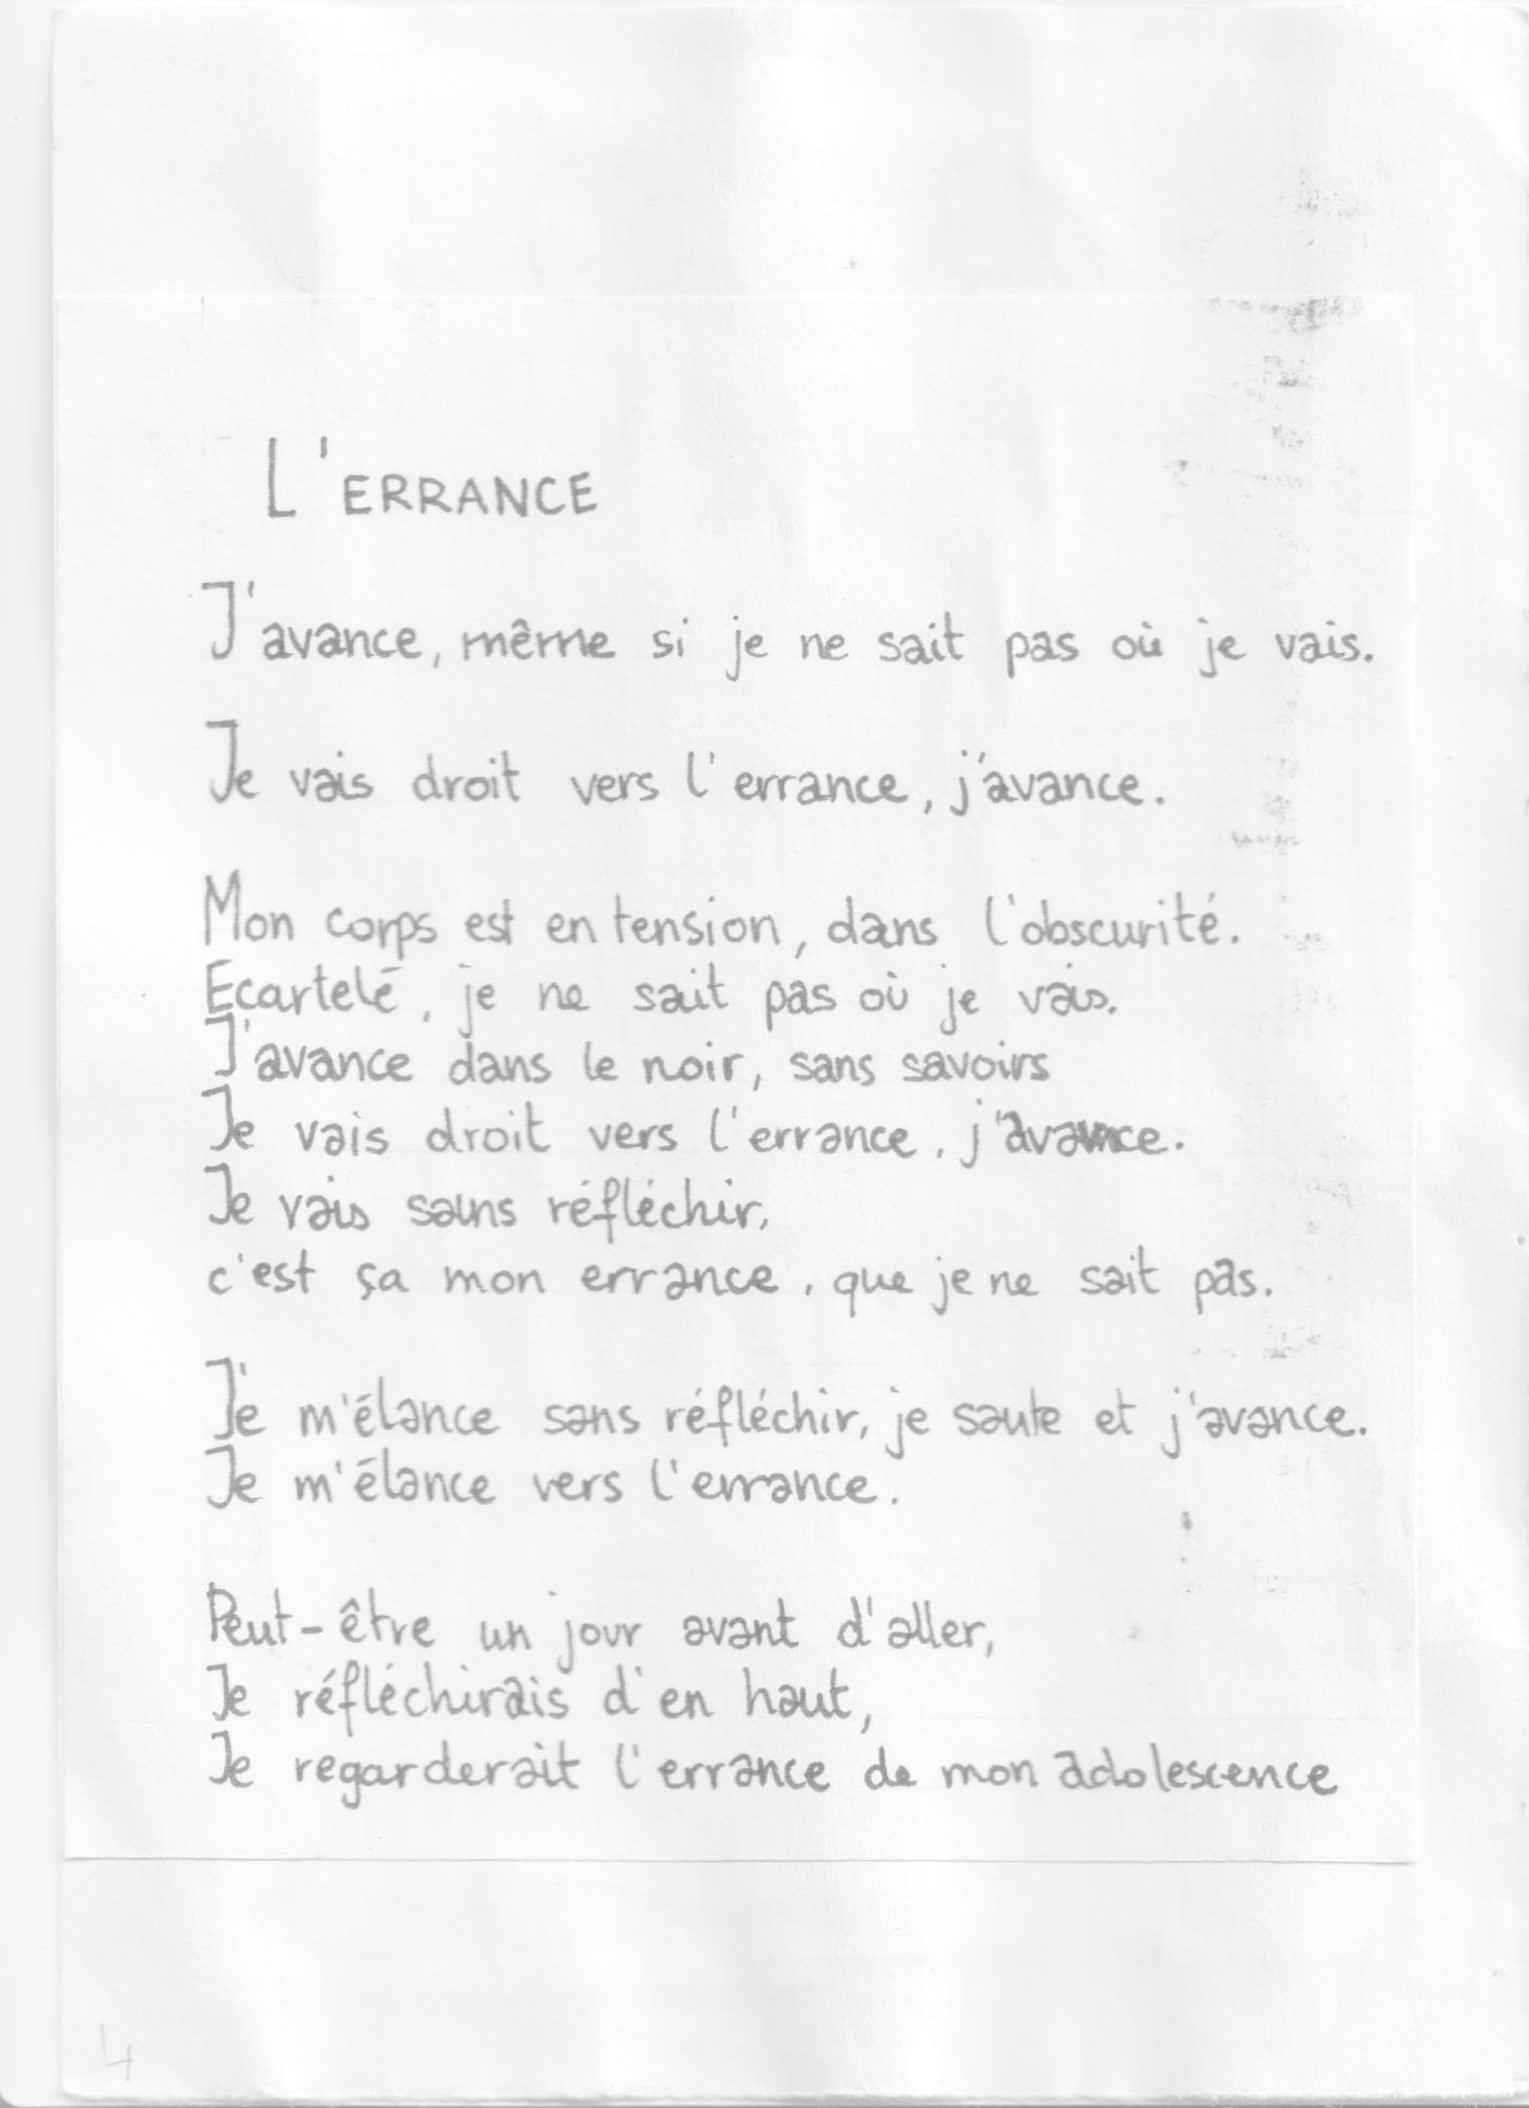 L'ERRANCE
J'avance, même si je ne sait pas où je vais.
Je vais droit vers l'errance, j'avance.
Mon corps est en tension, dans l'obscurité.
Ecartelé, je ne sait pas où je vais.
J'avance dans le noir, sans savoirs
Je vais droit vers l'errance, j'avance.
Je vais sans réfléchir,
c'est ça mon errance, que je ne sait pas.
Je m'élance sans réfléchir, je saute et j'avance.
Je m'élance vers l'errance.
Peut-être un jour avant d'aller,
Je réfléchirais d'en haut,
Je regarderait l'errance de mon adolescence
4